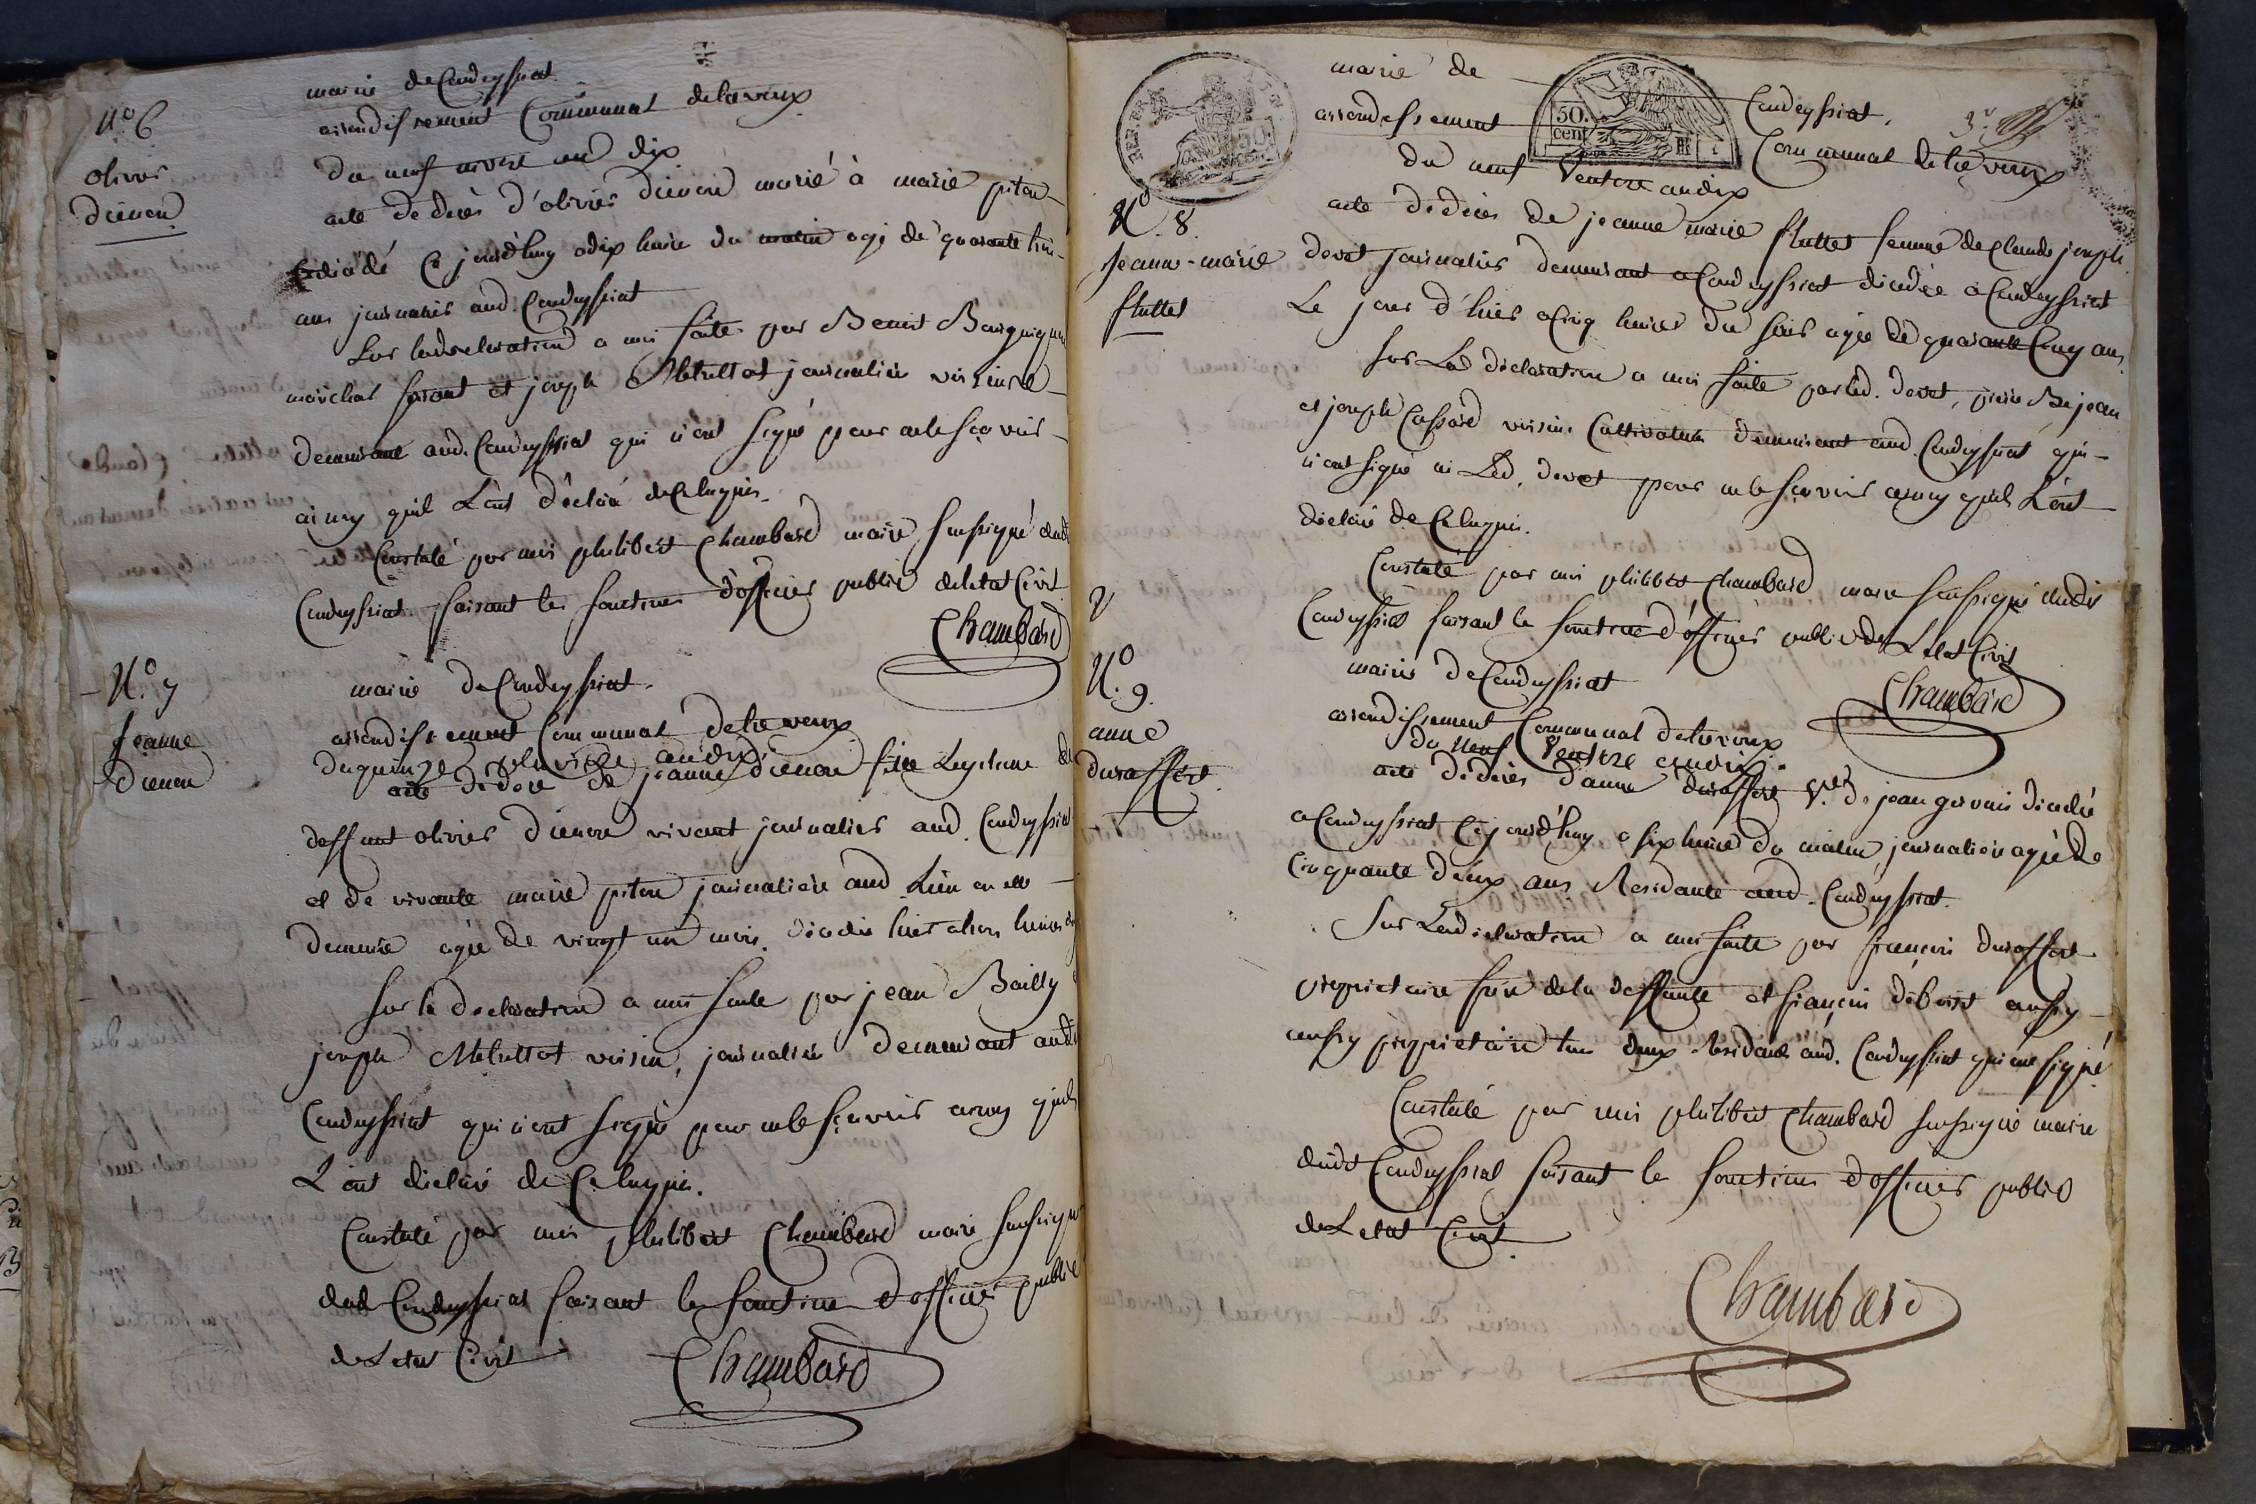 N.o 6
olivier
Dienon
mairie de Condeyssiat
arrondissement Communal de trevoux
du neuf nivose an dix
acte de deces d'olivier Dienon marié à marie piton
décédé Ce jourd'huy a dix heure du matin agé de quarante
ans journalier aud. Condeyssiat
Sur la declaration a moi faite par Benoit
maréchal ferant et joseph journalier voisins
demeurant aud. Condeyssiat qui n'ont signé pour ne le scavoir
ainsy qu'il L'ont déclaré de Ce luy requis.
Constaté par moi philibert Chambard maire soussigné dudt
Condeyssiat faisant les fonctions d'officier public de letat Civil
Chambard
N.o 7
jeanne
Dienon
mairie de Condeyssiat.
arrondissement Communal de trevoux
du quinze pluviose an dix
acte de deces de jeanne Dienon fille Legitime de
deffunt olivier Dienon vivant journalier aud. Condeyssiat
et de vivante marie piton journaliere aud. Lieu ou elle
demeure agée de vingt un mois. décédée hier a heures
Sur la declaration a moi faite par jean Bailly
joseph voisin, journalier demeurant audit
Condeyssiat qui n'ont signé pour ne le scavoir ainsy quils
L'ont declaré de Ce requis.
Constaté par moi philibert Chambard maire soussigné
dud Condeyssiat faisant les fonctions d'officier public
de Letat Civil
Chambard
REP. FRA.
50.
cent
mairie de Condeyssiat.
arrondissement Communal de trevoux
du neuf Ventose an dix
N.o 8.
Jeanne-marie
fluttet
acte de deces de jeanne marie fluttet femme de Claude joseph
devet journalier demeurant a Condeyssiat décédée a Condeyssiat
Le jour d'hier a Cinq heures du soir agée de quarante Cinq ans.
Sur La declaration a moi faite par led. devet, Bejean
et joseph Cassard voisins Cultivateurs demeurant aud. Condeyssiat qui
n'ont signé ni Led. devet pour ne le scavoir ainsy quils L'ont
declaré de Ce requis.
Constaté par moi philibert Chambard maire soussigné dudit
Condeyssiat faisant les fonctions d'officier public de Letat Civil
Chambard
N.o 9.
anne
duraffort
mairie de Condeyssiat
arrondissement Communal de trevoux
du neuf Ventose an dix.
acte de deces d'anne duraffort V.e de jean gervais décédée
a Condeyssiat Ce jourd'huy a six heures du matin, journaliere agée de
Cinquante deux ans Residante aud. Condeyssiat.
Sur La declaration a moi faite par françois duraffort
proprietaire frere de la deffunte et françois deboist aussy
aussy proprietaire tous deux Residant aud. Condeyssiat qui ont signé
Constaté par moi philibert Chambard soussigné maire
dudit Condeyssiat faisant les fonctions d'officier public
de Letat Civil.
Chambard